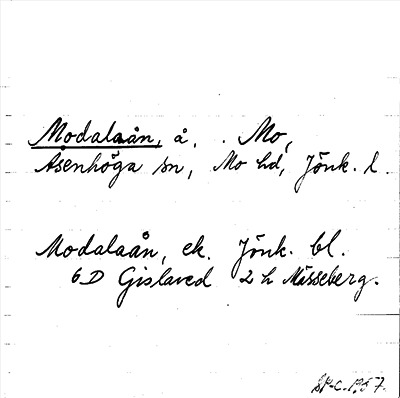 Modalaån, å. . Mo,
Åsenhöga sn, Mo hd, Jönk. l.
Modalaån, ek. Jönk. bl.
6D Gislaved 2 h Mässeberg.